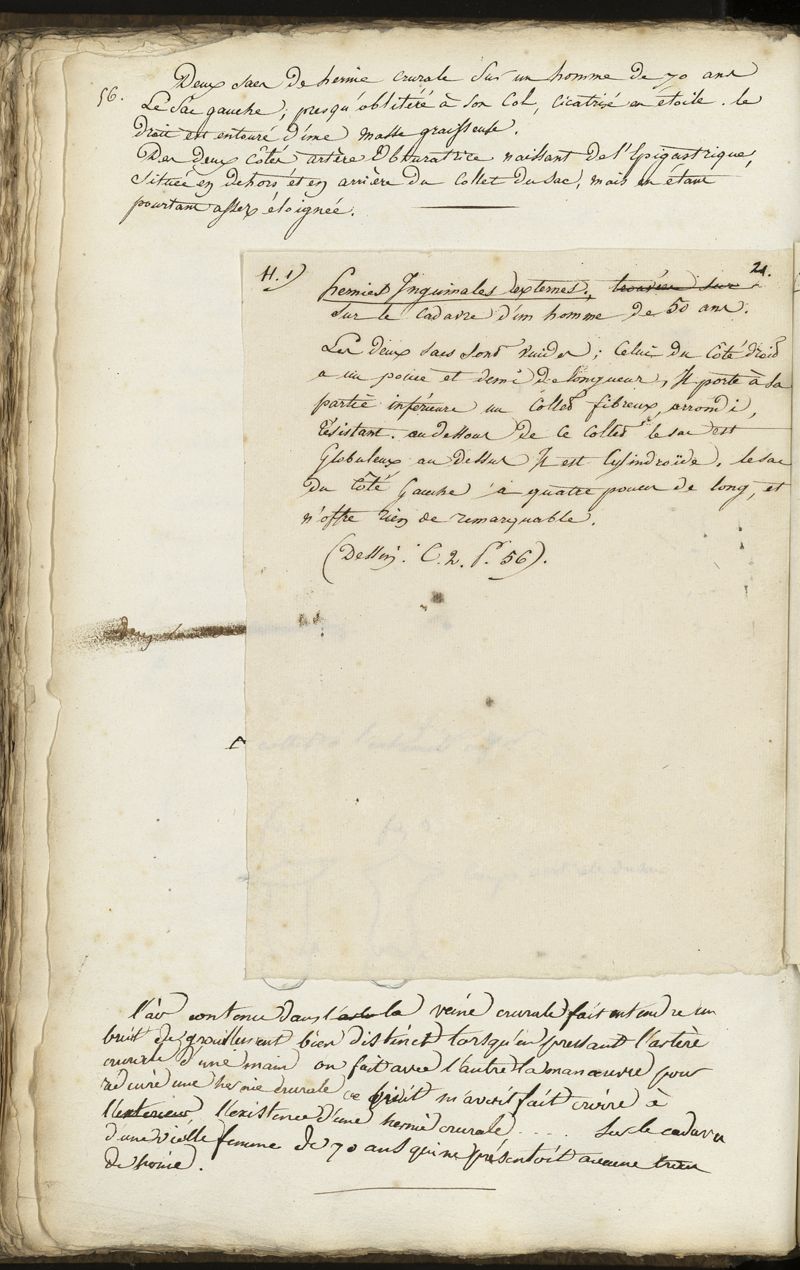 56. Deux sacs de hernie crurale sur un homme de 70 ans
Le Sac gauche, presqu'oblitéré à son Col, cicatrisé en étoile. le
droit est entouré d'une masse graisseuse.
Des deux côtés artère Obturatrice naissant de l'Epigastrique,
située en dehors et en arrière du Collet du sac, mais en étant
pourtant assez éloignée.
H. 1) 21.
hernies Inguinales externes, trouvées sur
sur le cadavre d'un homme de 50 ans.
Les deux sacs sont vuides; Celui du Côté droit
a un pouce et demi de longueur, Il porte à sa
partie inférieure un Collet fibreux, arrondi,
résistant. au dessous de ce Collet le sac est
Globuleux au dessus Il est Cylindroïde. le sac
Du Côté Gauche a quatre pouces de long, et
n'offre rien de remarquable.
(Dessin. C. 2. P. 56).
l'air contenu dans la veine crurale fait entendre un
bruit de grouillement bien distinct lorsqu'en pressant l'artère
crurale d'une main on fait avec l'autre la manœuvre pour
réduire une hernie crurale ce bruit m'avoit fait croire à
l'extérieur l'existence d'une hernie crurale ..... Sur le cadavre
d'une vieille femme de 70 ans qui ne présentoit aucune trace
de hernie.